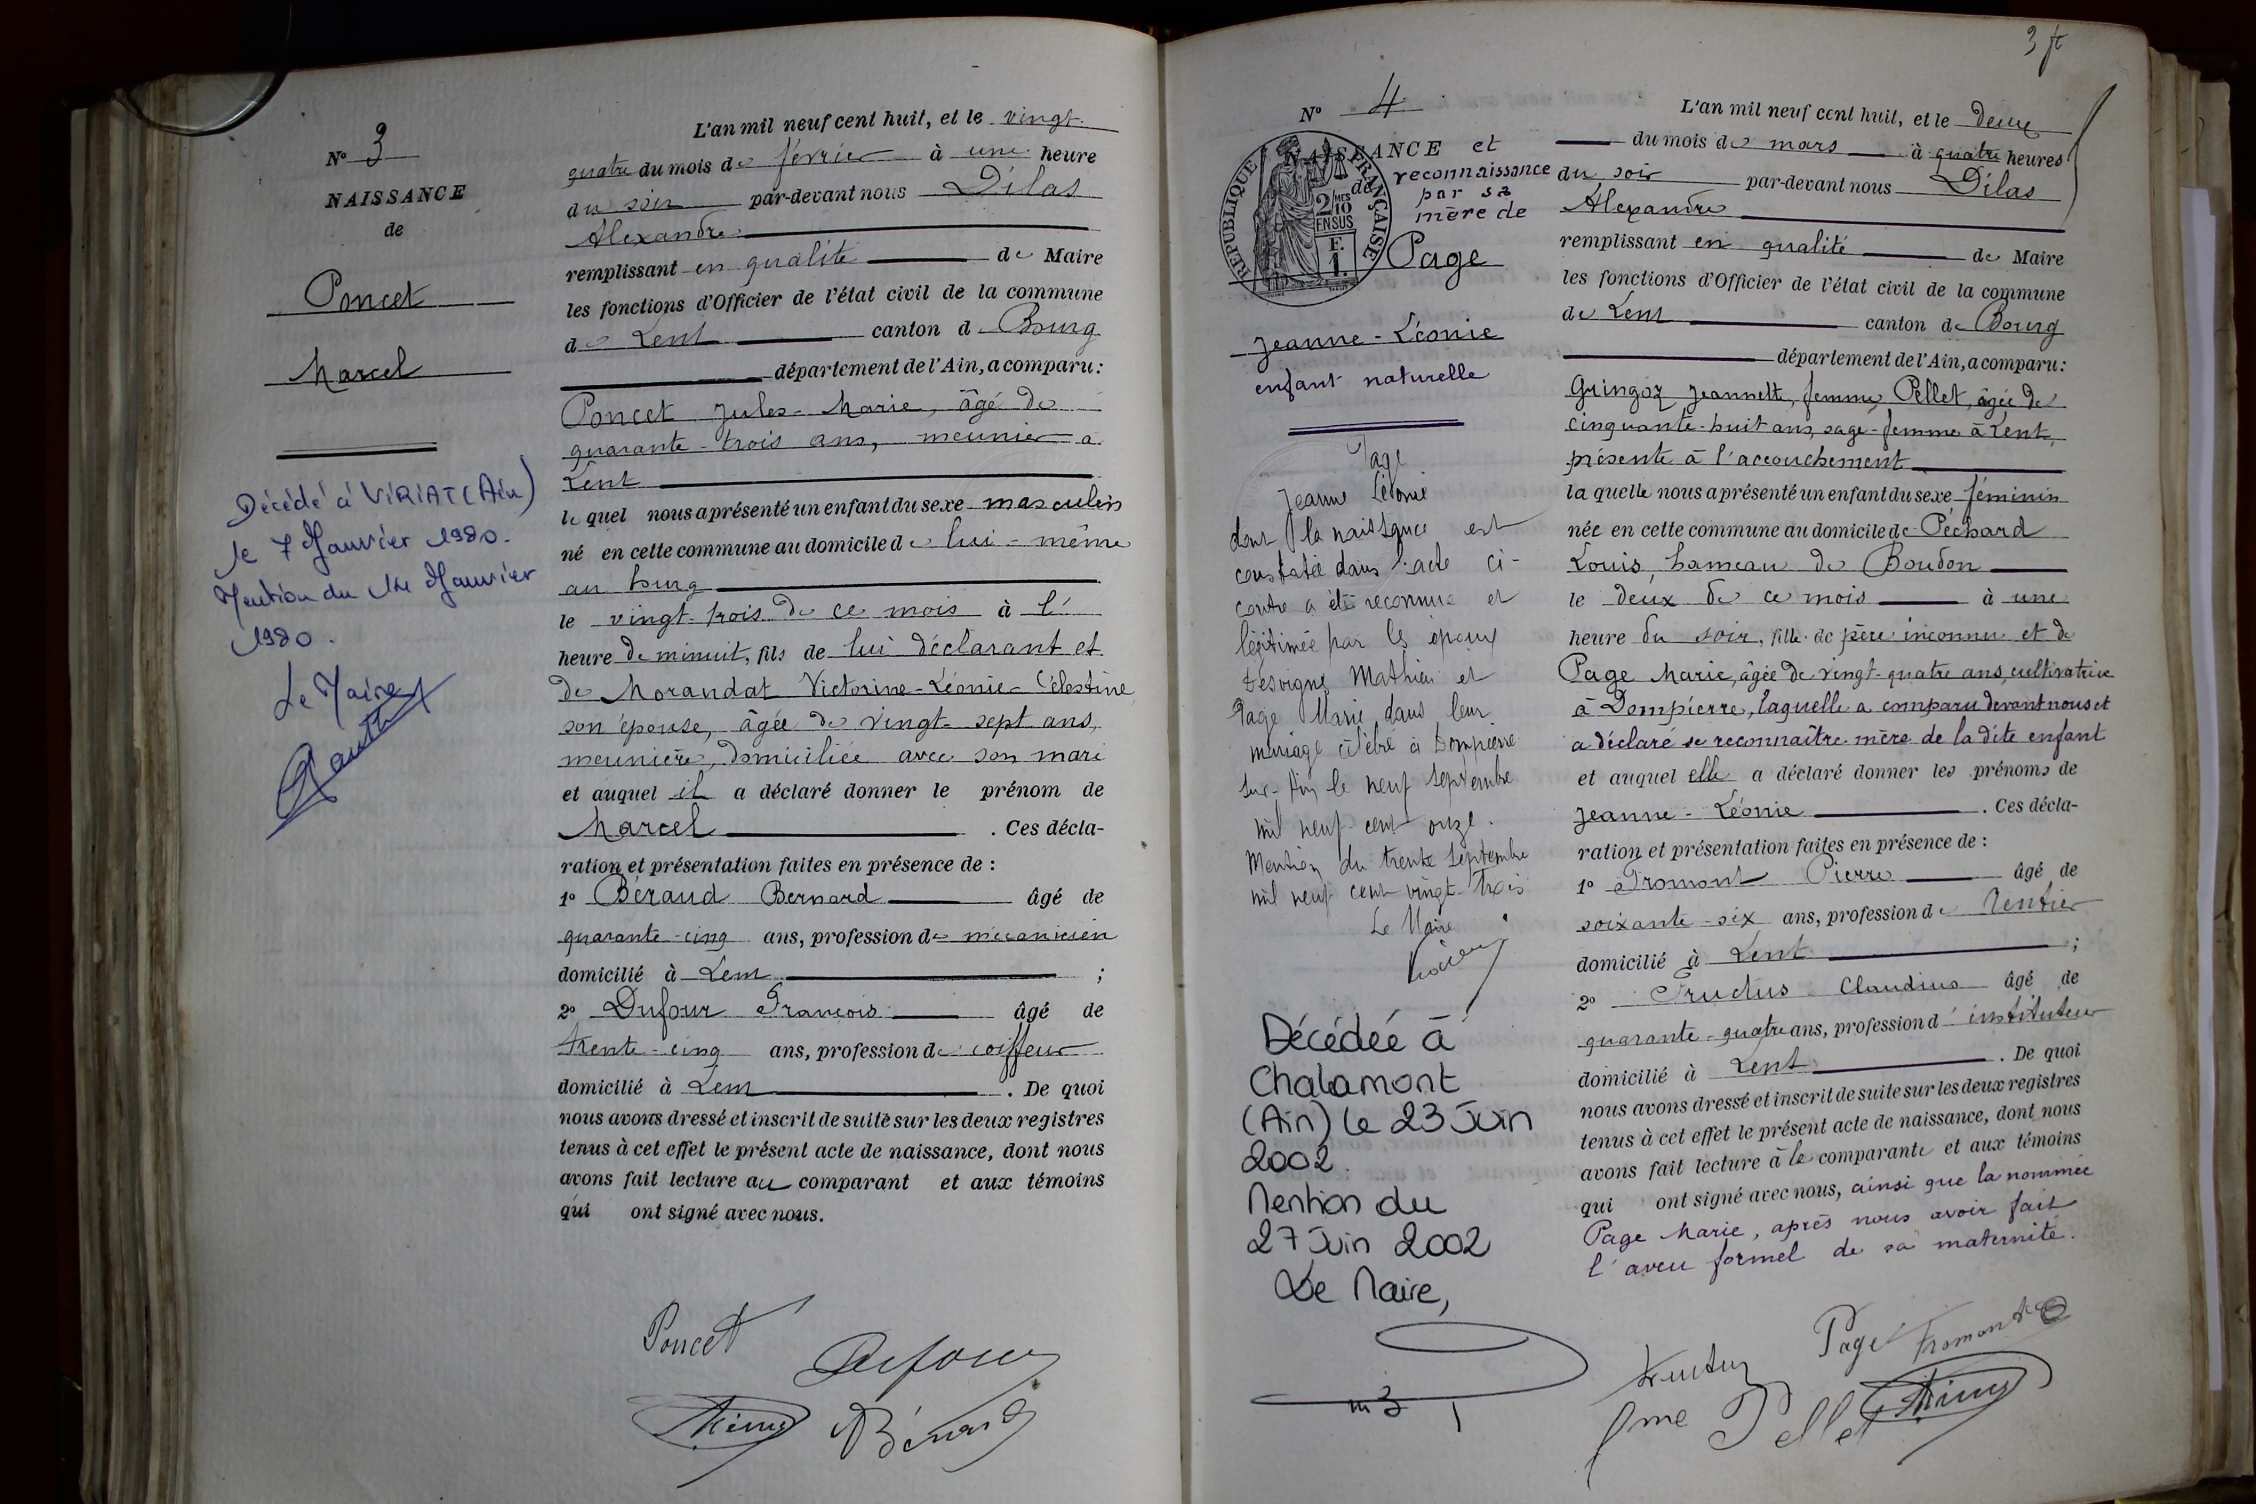 N° 3
NAISSANCE
de
Poncet
Marcel
Décédé à VIRIAT (Ain)
le 7 Janvier 1980.
Mention du 14 Janvier
1980.
Le Maire
L'an mil neuf cent huit, et le vingt-
quatre du mois de février à une heure
du soir par-devant nous Dilas
Alexandre
remplissant en qualité de Maire
les fonctions d'Officier de l'état civil de la commune
de Lent canton d Bourg
département de l'Ain, a comparu:
Poncet Jules-Marie, âgé de
quarante-trois ans, meunier à
Lent
lequel nous a présenté un enfant du sexe masculin
né en cette commune au domicile de lui-même
au bourg
le vingt-trois de ce mois à l'
heure de minuit, fils de lui déclarant et
de Morandat Victorine-Léonie-Célestine
son épouse, âgée de vingt-sept ans,
meunière, domiciliée avec son mari
et auquel il a déclaré donner le prénom de
Marcel. Ces décla-
ration et présentation faites en présence de :
1° Béraud Bernard âgé de
quarante-cinq ans, profession de mécanicien
domicilié à Lent ;
2° Dufour François âgé de
trente-cinq ans, profession de coiffeur
domicilié à Lent. De quoi
nous avons dressé et inscrit de suite sur les deux registres
tenus à cet effet le présent acte de naissance, dont nous
avons fait lecture au comparant et aux témoins
qui ont signé avec nous.
Poncet
Dufour
Béraud
3 ft
N° 4
NAISSANCE et
reconnaissance
de par sa
mère de
RÉPUBLIQUE FRANÇAISE
2/10 MES
EN SUS
F.
1.
Page
Jeanne-Léonie
enfant naturelle
Page
Jeanne Léonie
dont la naissance est
constatée dans l'acte ci-
contre a été reconnue et
légitimée par les époux
Desvigne Mathieu et
Page Marie dans leur
mariage célébré à Dompierre
sur-Ain le neuf septembre
mil neuf cent onze.
Mention du trente septembre
mil neuf cent vingt-trois
Le Maire
Décédée à
Chalamont
(Ain) le 23 Juin
2002.
Mention du
27 Juin 2002
Le Maire,
L'an mil neuf cent huit, et le deux
du mois de mars à quatre heures
du soir par-devant nous Dilas
Alexandre
remplissant en qualité de Maire
les fonctions d'Officier de l'état civil de la commune
de Lent canton de Bourg
département de l'Ain, a comparu:
Gringoz Jeannette, femme Pellet, âgée de
cinquante-huit ans, sage-femme à Lent,
présente à l'accouchement
laquelle nous a présenté un enfant du sexe féminin
née en cette commune au domicile de Péchard
Louis, hameau de Boudon
le deux de ce mois à une
heure du soir, fille de père inconnu et de
Page Marie, âgée de vingt-quatre ans, cultivatrice
à Dompierre, laquelle a comparu devant nous et
a déclaré se reconnaître mère de la dite enfant
et auquel elle a déclaré donner les prénoms de
Jeanne-Léonie. Ces décla-
ration et présentation faites en présence de :
1° Fromont Pierre âgé de
soixante-six ans, profession de Rentier
domicilié à Lent ;
2° Fructus Claudius âgé de
quarante-quatre ans, profession d'instituteur
domicilié à Lent. De quoi
nous avons dressé et inscrit de suite sur les deux registres
tenus à cet effet le présent acte de naissance, dont nous
avons fait lecture à la comparante et aux témoins
qui ont signé avec nous, ainsi que la nommée
Page Marie, après nous avoir fait
l'aveu formel de sa maternité.
Page Fromont
Fructus
fme Pellet